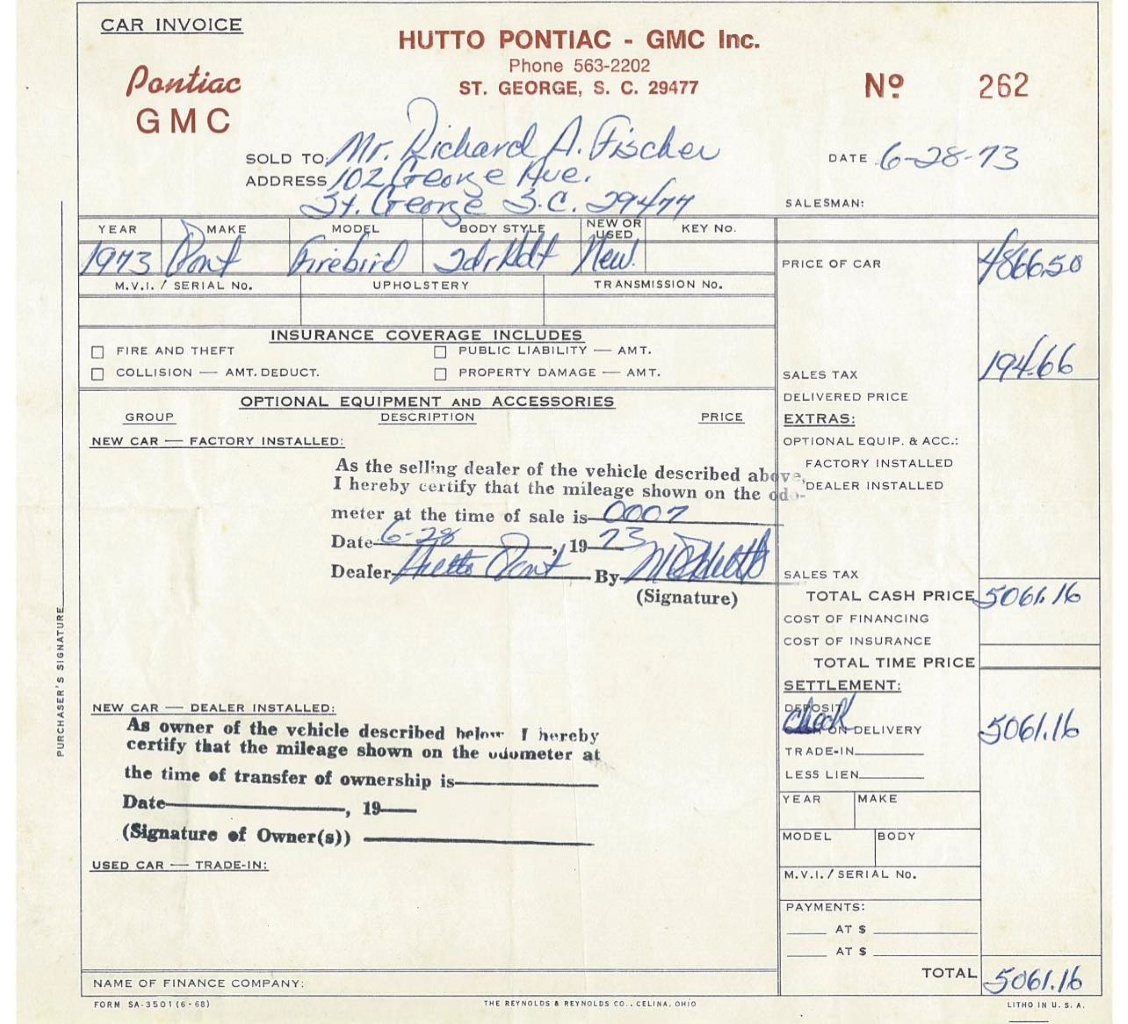 CAR INVOICE
HUTTO PONTIAC - GMC Inc.
Phone 563-2202
ST. GEORGE, S. C. 29477
Pontiac
GMC
Nº 262
SOLD TO Mr. Richard A. Fischer
DATE 6-28-73
ADDRESS 102 George Ave.
St. George S.C. 29477
SALESMAN:
YEAR MAKE MODEL BODY STYLE NEW OR USED KEY NO.
1973 Pont Firebird 2drHdt New.
PRICE OF CAR 4866.50
M.V.I. / SERIAL No. UPHOLSTERY TRANSMISSION No.
INSURANCE COVERAGE INCLUDES
FIRE AND THEFT PUBLIC LIABILITY — AMT.
COLLISION — AMT. DEDUCT. PROPERTY DAMAGE — AMT.
SALES TAX 194.66
DELIVERED PRICE
OPTIONAL EQUIPMENT AND ACCESSORIES
GROUP DESCRIPTION PRICE
EXTRAS:
NEW CAR — FACTORY INSTALLED:
OPTIONAL EQUIP. & ACC.:
FACTORY INSTALLED
DEALER INSTALLED
As the selling dealer of the vehicle described above,
I hereby certify that the mileage shown on the odo-
meter at the time of sale is 0007
Date 6-28, 19 73
Dealer Hutto Pont By
(Signature)
SALES TAX
TOTAL CASH PRICE 5061.16
COST OF FINANCING
COST OF INSURANCE
TOTAL TIME PRICE
SETTLEMENT:
DEPOSIT
check ON DELIVERY 5061.16
TRADE-IN
LESS LIEN
YEAR MAKE
MODEL BODY
M.V.I. / SERIAL No.
PAYMENTS:
AT $
AT $
TOTAL 5061.16
NEW CAR — DEALER INSTALLED:
As owner of the vehicle described below I hereby
certify that the mileage shown on the odometer at
the time of transfer of ownership is
Date , 19
(Signature of Owner(s))
USED CAR — TRADE-IN:
NAME OF FINANCE COMPANY:
PURCHASER'S SIGNATURE
FORM SA-3501 (6-68)
THE REYNOLDS & REYNOLDS CO., CELINA, OHIO
LITHO IN U. S. A.